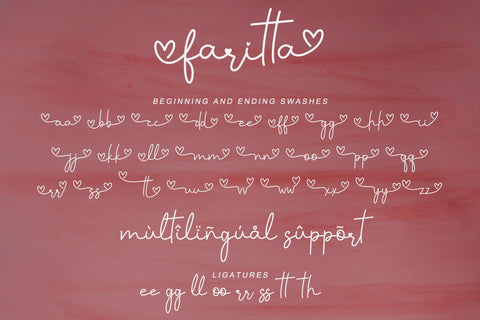 faritta
BEGINNING AND ENDING SWASHES
aa bb cc dd ee ff gg hh ii
jj kk ll mm nn oo pp qq
rr ss tt uu vv ww xx yy zz
mùltîlïñgúål sûppõrt
LIGATURES
ee gg ll oo rr ss tt th